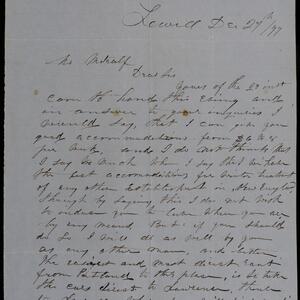 Lowell Dec 27th/77
Mr Metcalf
Dear Sir
Yours of the 23 inst
came to hand this Evening and
in answer to your inquiries I
would say, that I can give you
good accommodations from $6 to 8
per week, and I do not think that
I say to much when I say that I
the best accommodations for Winter treatment
of any other Establishment in New England
though by saying, this I do not wish
to induce you to Come When you
by any means But if you should
do so I will do as well by you
as any other man, and better
The easiest and most direct rout
from Portland to this place, is to take
the cars direct to Lawrence, thence
to